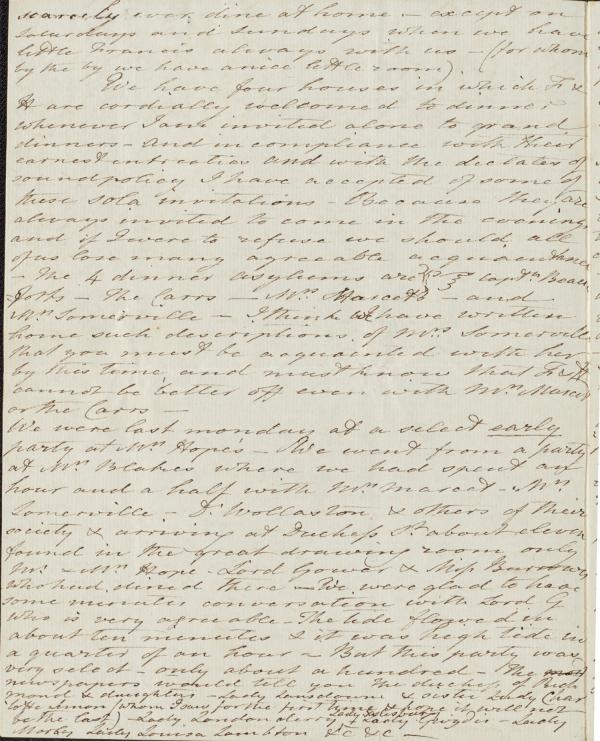 scarcely ever dine at home – except on
Saturdays and Sundays when we have
little Francis always with us – (for whom
by the by we have a nice little room)
We have four houses in which F &
H are cordially welcomed to dinner
whenever I am invited alone to grand
dinners – and in compliance with their
earnest entreaties and with the dictates of
sound policy I have accepted of some of
these sola invitations – Because they are
always invited to come in the evening
and if I were to refuse we should all
of us lose many agreeable acquaintance
– The 4 dinner asylums are Captn. Beau
=forts – The Carrs – Mrs. Marcets – and
Mrs. Somerville – I think I have written
home such descriptions of Mrs. Somerville
that you must be acquainted with her
by this time and must know that F & H
cannot be better off even with Mrs. Marcet
or the Carrs –
We were last monday at a select early
party at Mrs. Hope's – We went from a party
at Mrs. Blakes where we had spent an
hour and a half with Mrs. Marcet – Mrs.
Somerville – Dr. Wollaston & others of their
society & arriving at Duchess St. about eleven
found in the great drawing room only
Mr. & Mrs. Hope – Lord Gower & Miss Burrowes
who had dined there – We were glad to have
some minutes conversation with Lord G
who is very agreable – The tide flowed in
about ten minutes & it was high tide in
a quarter of an hour – But this party was
very select – only about a hundred – The
newspapers would tell you The duchess of Rich
mond & daughters – Lady Lansdowne & sister Lady Char
lotte Lemon (whom I saw for the first time & hope it will not
be the last) – Lady Londonderry Lady Salisbury – Lady
Morley Lady Louisa Lambton &c &c –